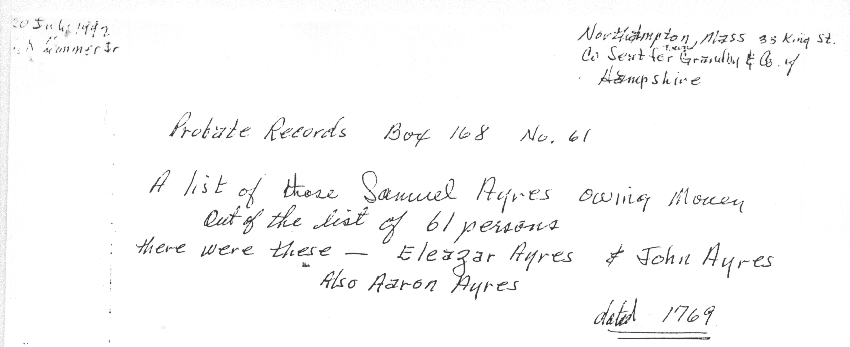 20 July 1992
Jr
Northampton, Mass 33 King St.
Co Seat for Granby & Co. of
Hampshire
Probate Records Box 168 No. 61
A list of those Samuel Ayres owing Money
Out of the list of 61 persons
there were these — Eleazar Ayres & John Ayres
Also Aaron Ayres
dated 1769